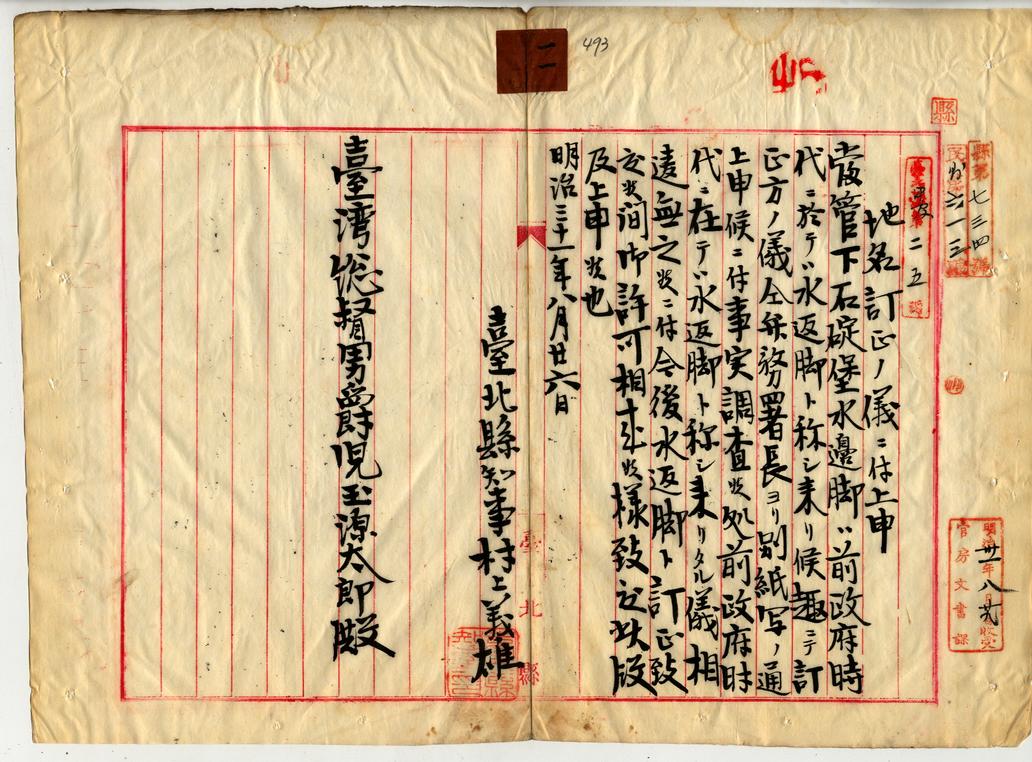 二
493
縣
縣第七三四號
民第六一三號
二五
明治卅一年八月廿九日收受
官房文書課
地名訂正ノ儀ニ付上申
當管下石碇堡水邊脚ハ前政府時
代ニ於テハ水返脚ト称シ来リ候趣ニテ訂
正方ノ儀仝弁務署長ヨリ別紙写ノ通
上申候ニ付事実調査候処前政府時
代ニ在テハ水返脚ト称シ来リタル儀相
違無之候ニ付今後水返脚ト訂正致
度候間御許可相成候様致度此段
及上申候也
明治三十一年八月廿六日
臺北縣知事村上義雄
臺北縣
臺湾総督男爵児玉源太郎殿